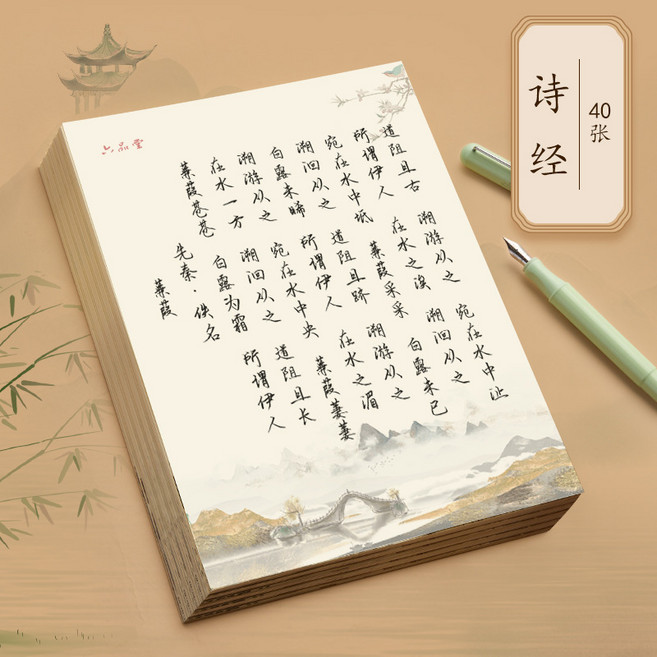 六品堂
诗经
40张
蒹葭
先秦·佚名
蒹葭苍苍 白露为霜 所谓伊人
在水一方 溯洄从之 道阻且长
溯游从之 宛在水中央 蒹葭萋萋
白露未晞 所谓伊人 在水之湄
溯洄从之 道阻且跻 溯游从之
宛在水中坻 蒹葭采采 白露未已
所谓伊人 在水之涘 溯洄从之
道阻且右 溯游从之 宛在水中沚